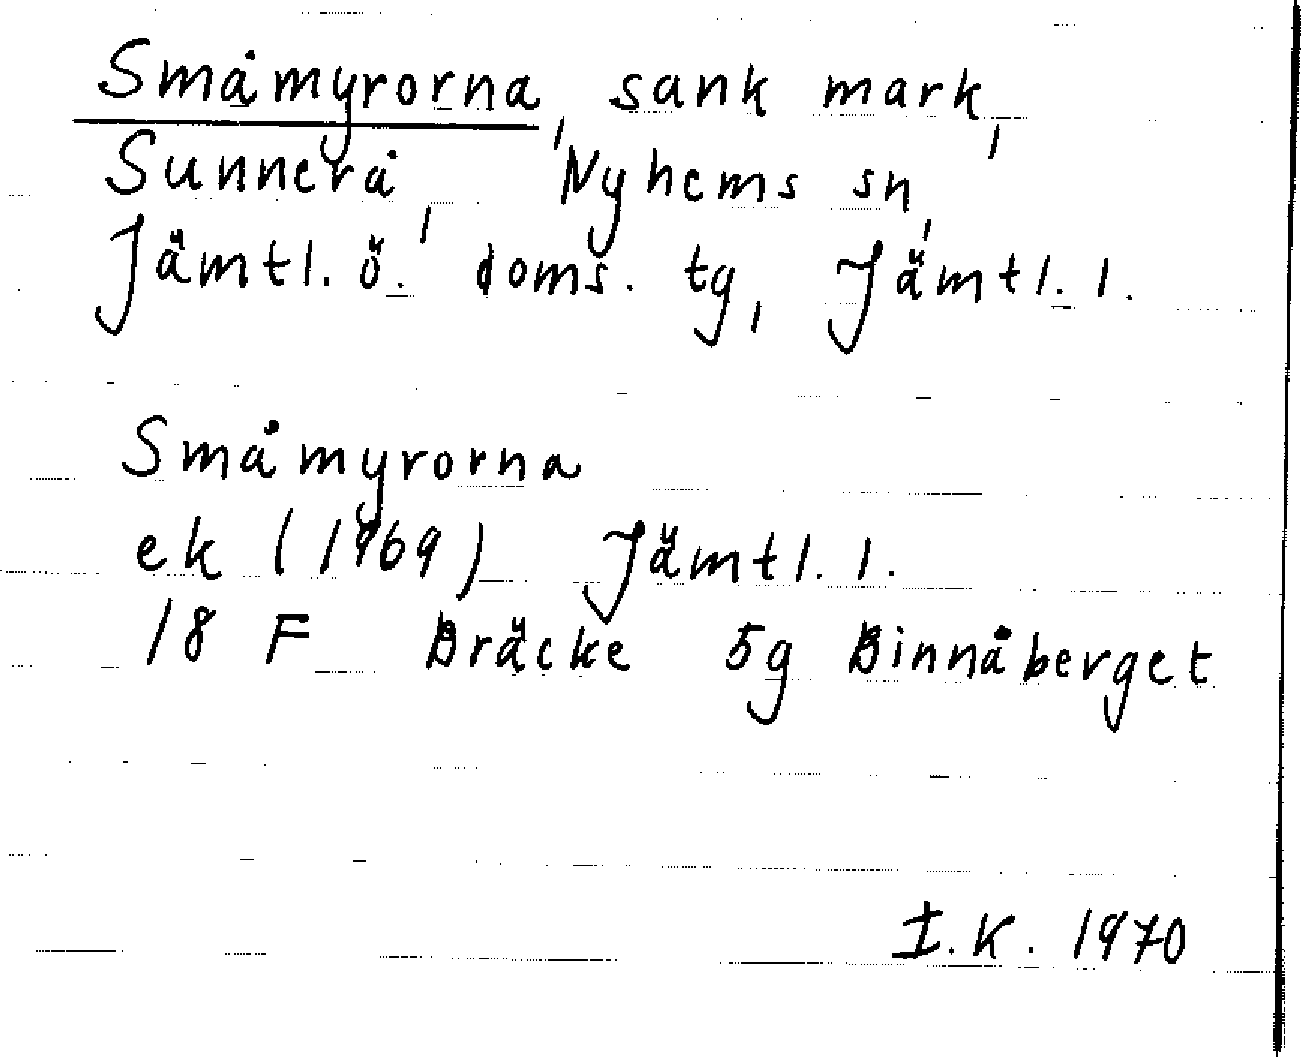 Småmyrorna, sank mark,
Sunnerå, Nyhems sn,
Jämtl. ö. doms. tg, Jämtl. l.
Småmyrorna
ek (1969) Jämtl. l.
18 F Bräcke 5g Binnåberget
I.K. 1970